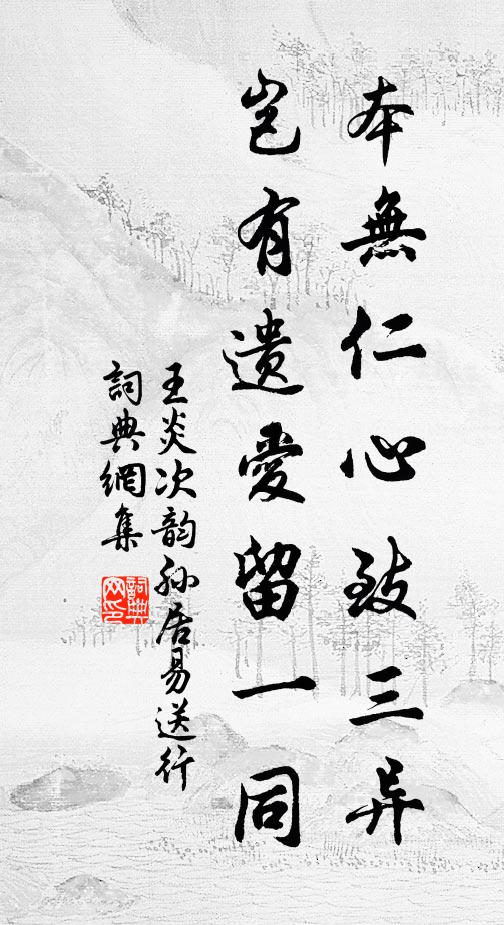 本無仁心致三异
豈有遺愛留一同
王炎次韵孙居易送行
詞典網集
詞典